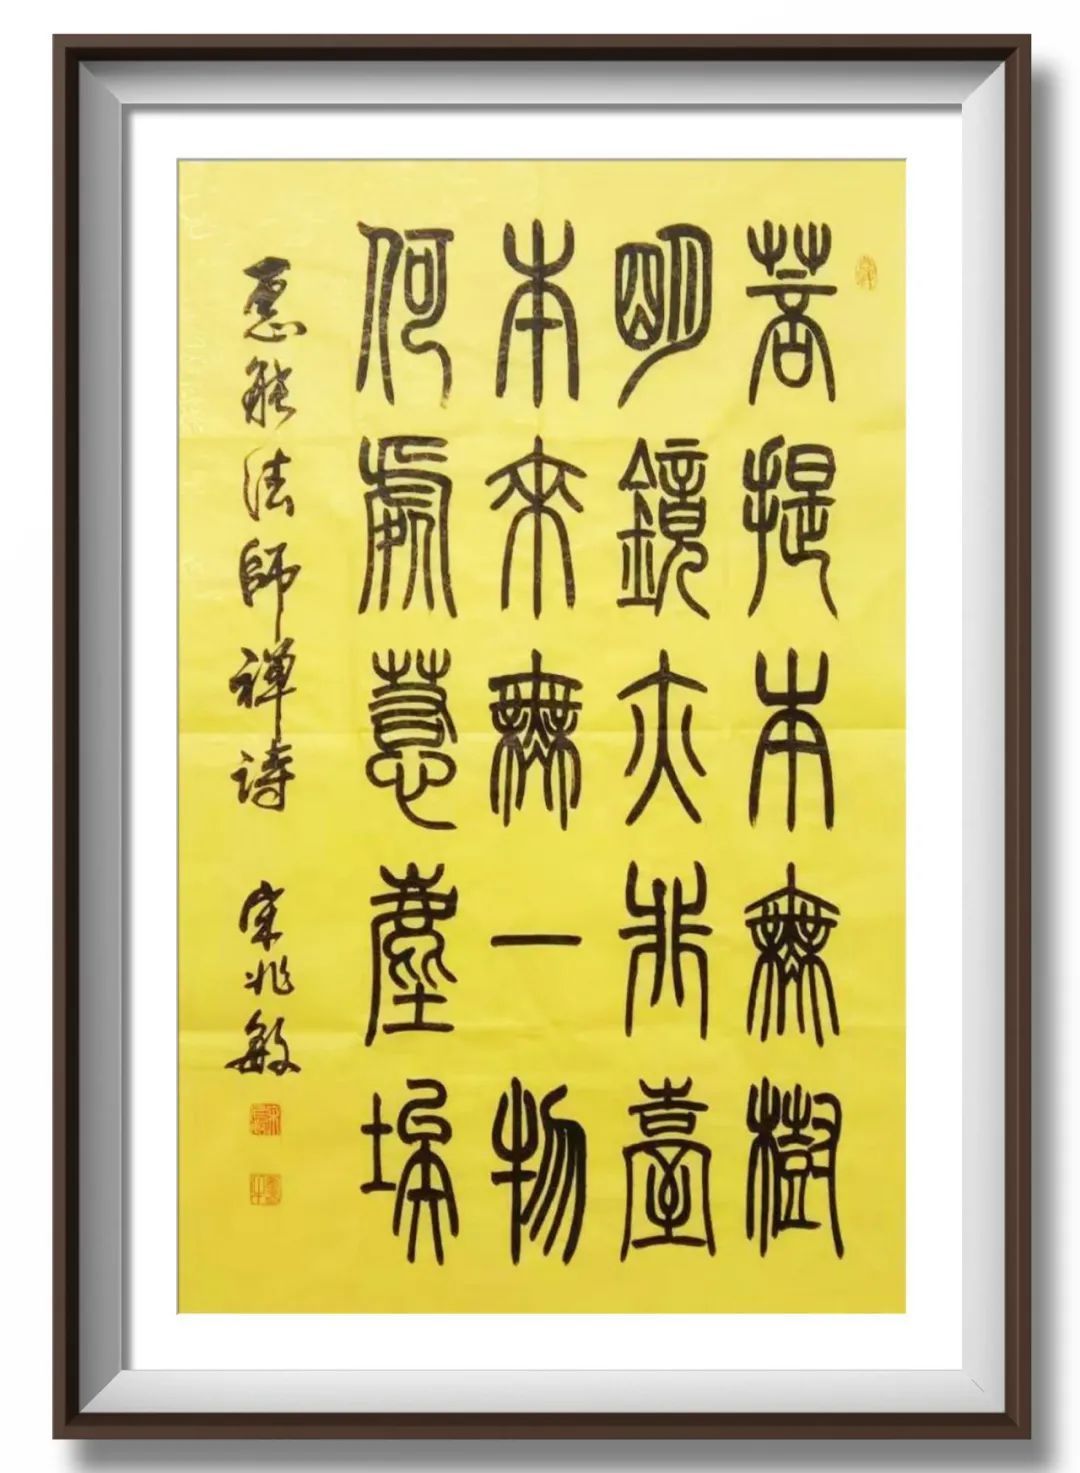 菩提本無樹
明鏡亦非臺
本來無一物
何處惹塵埃
惠能法師禅诗 宋兆敏